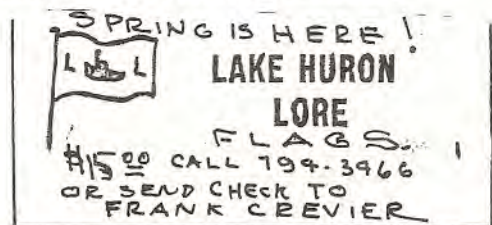 SPRING IS HERE!
L L
LAKE HURON
LORE
FLAGS.
$15.00 CALL 794-3966
OR SEND CHECK TO
FRANK CREVIER